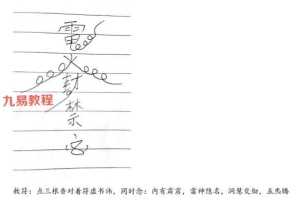 雷
火
封
禁
九易教程
敕符：点三根香对着符虚书讳，同时念：内有霹雳，雷神隐名，洞慧交彻，五炁腾